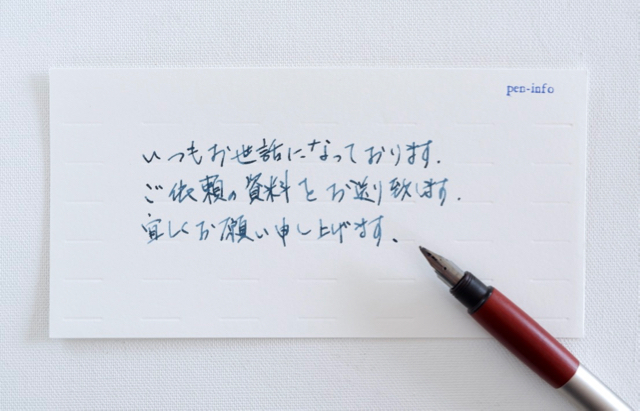 pen-info
いつもお世話になっております.
ご依頼の資料をお送り致します.
宜しくお願い申し上げます.